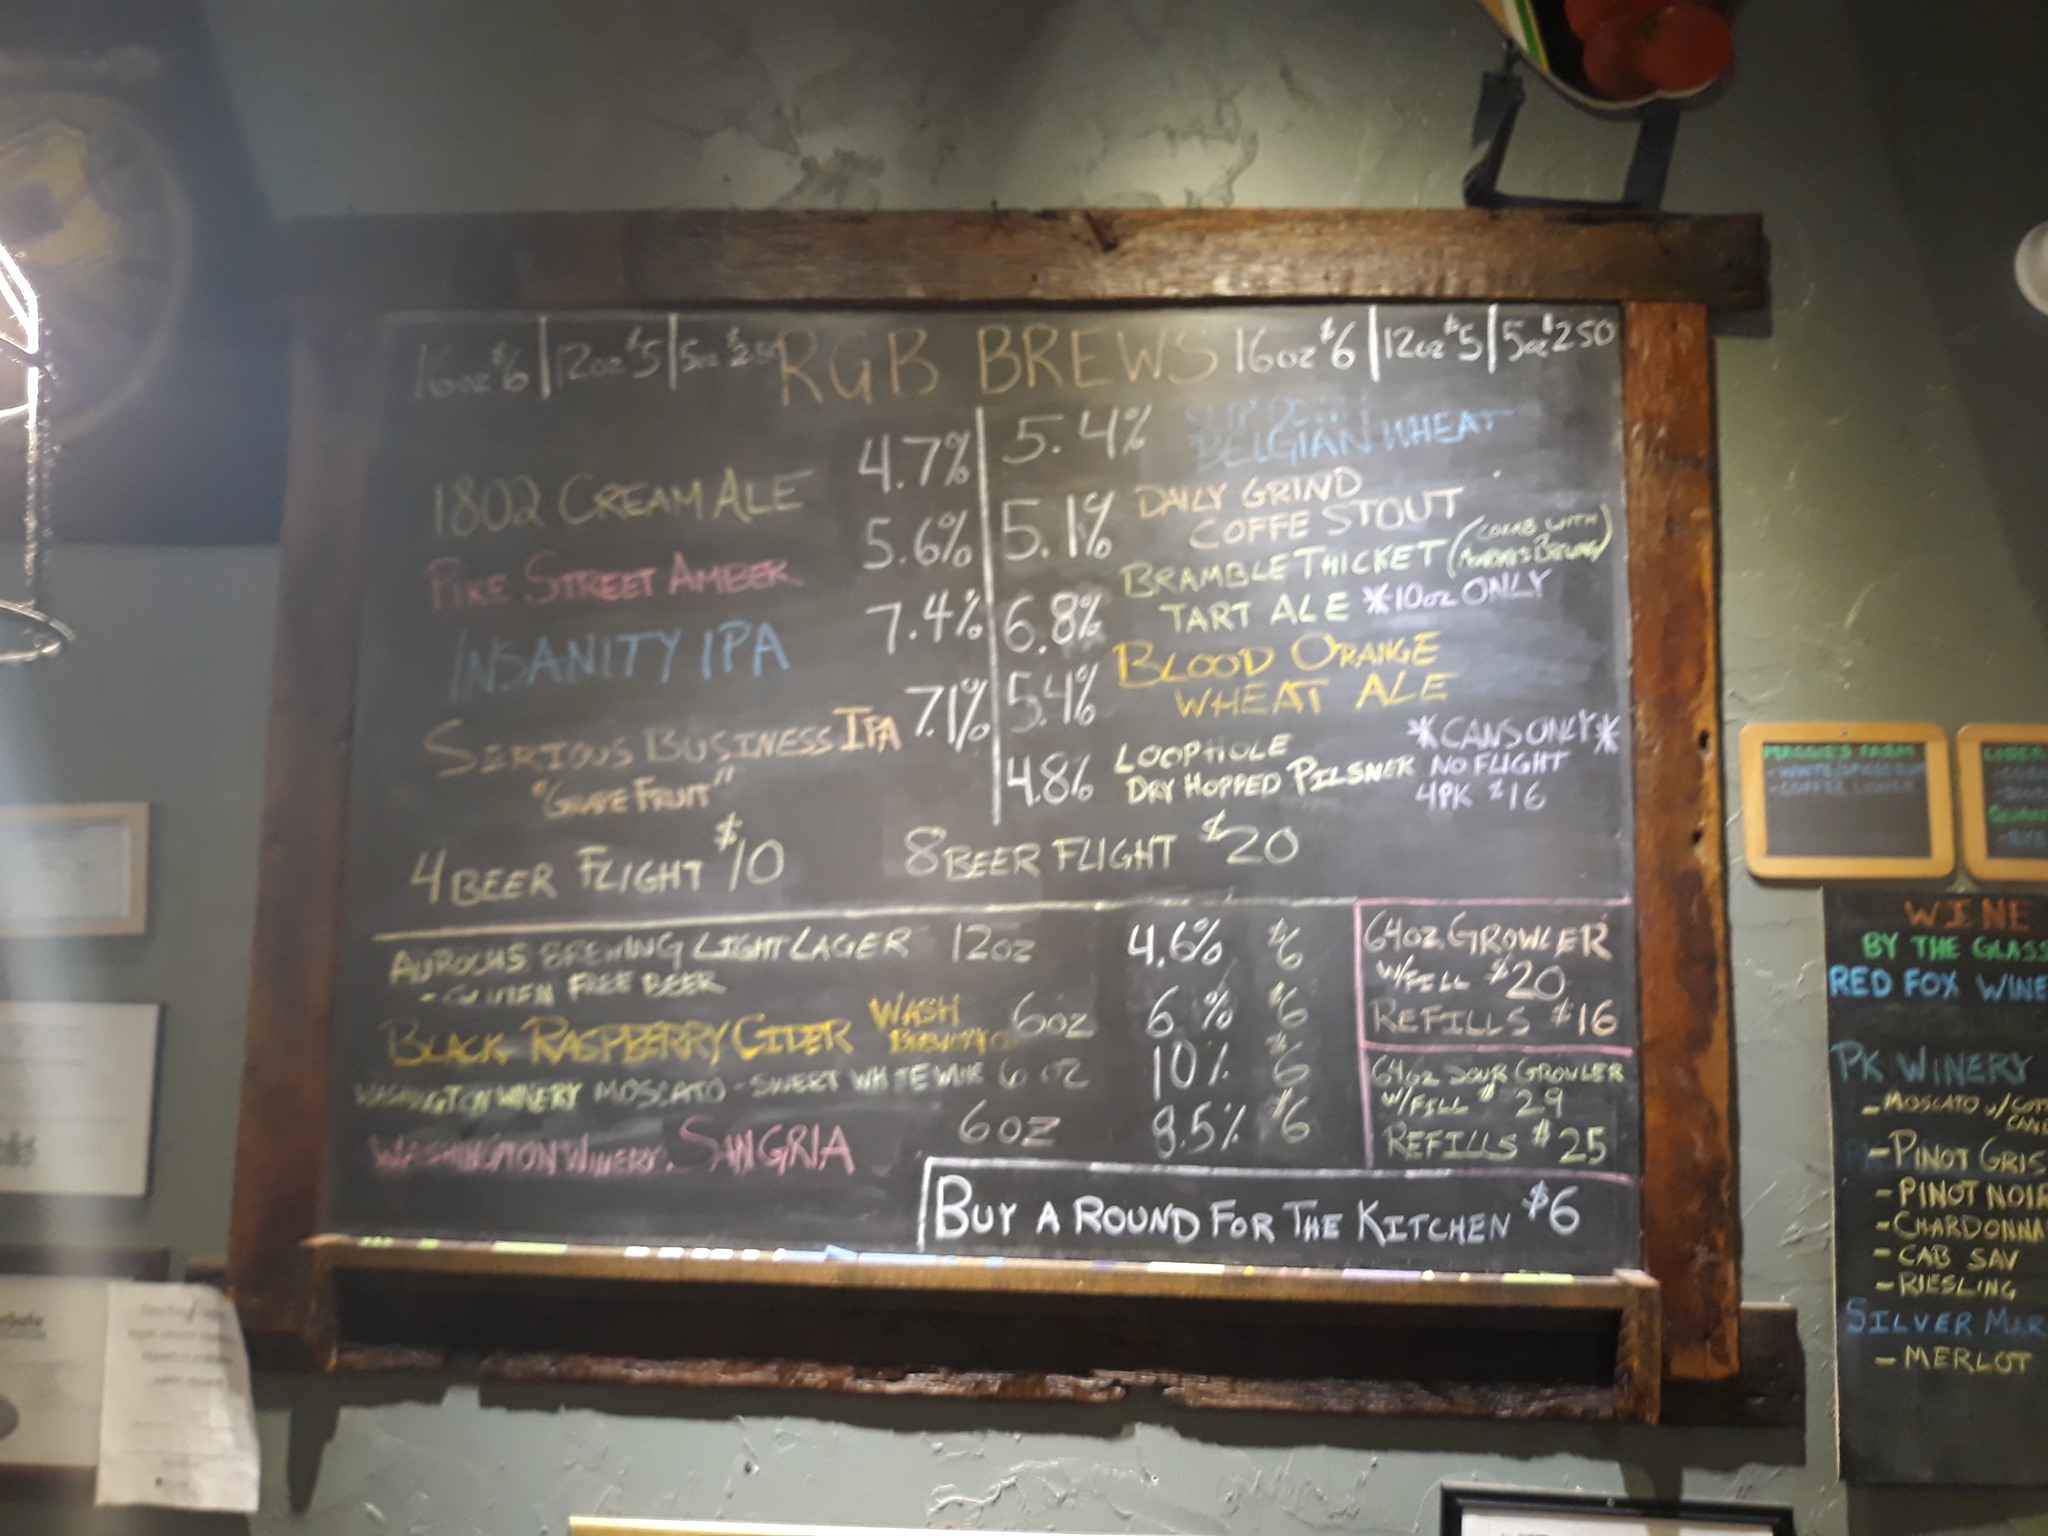 16oz $6 | 12oz $5 | 5oz $2 50 RGB BREWS 16oz $6 | 12oz $5 | 5oz $2 50
1802 CREAM ALE 4.7%
PIKE STREET AMBER 5.6%
INSANITY IPA 7.4%
SERIOUS BUSINESS IPA 7.1%
"GRAPE FRUIT"
5.4% SLIP DOWN
BELGIAN WHEAT
5.1% DAILY GRIND
COFFE STOUT
6.8% BRAMBLE THICKET (COLAB WITH
BREWING)
TART ALE *10oz ONLY
5.4% BLOOD ORANGE
WHEAT ALE
4.8% LOOPHOLE
DRY HOPPED PILSNER
*CANS ONLY*
NO FLIGHT
4PK $16
4 BEER FLIGHT $10 8 BEER FLIGHT $20
AUROCHS BREWING LIGHT LAGER 12oz 4.6% $6
- GLUTEN FREE BEER
BLACK RASPBERRY CIDER WASH 6oz 6% $6
BREWING
WASHINGTON WINERY MOSCATO - SWEET WHITE WINE 6oz 10% $6
WASHINGTON WINERY. SANGRIA 6oz 8.5% $6
64oz. GROWLER
W/FILL $20
REFILLS $16
64oz SOUR GROWLER
W/FILL $29
REFILLS $25
BUY A ROUND FOR THE KITCHEN $6
MAGGIE'S FARM
- COFFEE LIQUOR
WINE
BY THE GLASS
RED FOX WINE
PK WINERY
- MOSCATO w/COTT
CAND
- PINOT GRIS
- PINOT NOIR
- CHARDONNA
- CAB SAV
- RIESLING
SILVER MAR
- MERLOT